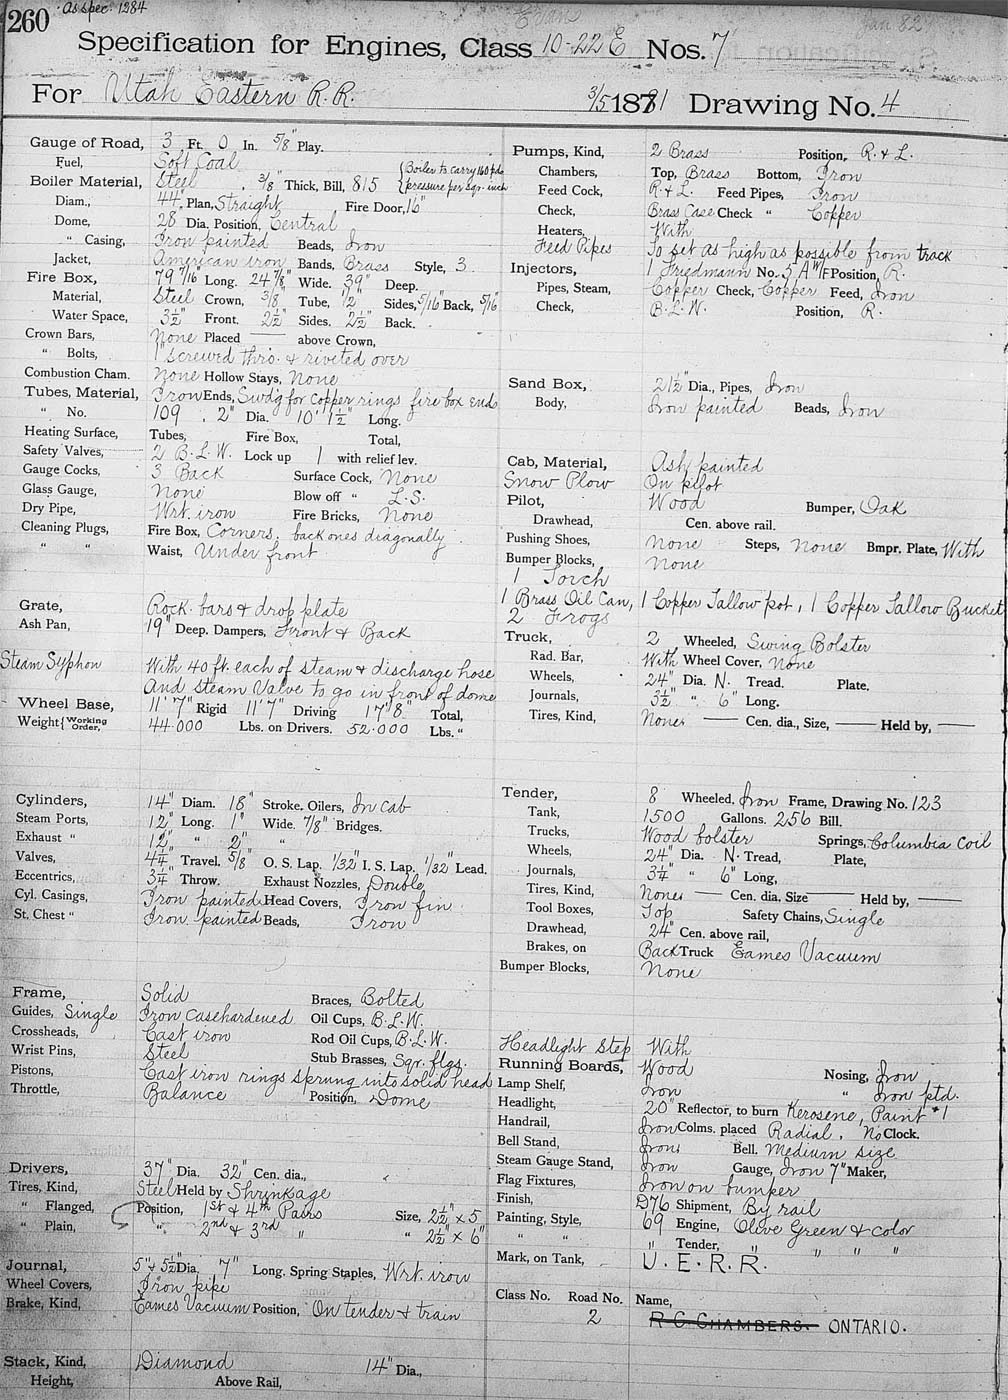 260 As spec. 1284
Evan Jan 82
Specification for Engines, Class 10-22 E Nos. 7
For Utah Eastern R.R. 3/5 1881 Drawing No. 4
Gauge of Road, 3 Ft. 0 In. 5/8" Play.
Fuel, Soft Coal
Boiler Material, Steel, 3/8" Thick, Bill, 815 {Boiler to carry 160 pds pressure per Sqr. inch
Diam., 44" Plan, Straight Fire Door, 16"
Dome, 28" Dia. Position, Central
" Casing, Iron painted Beads, Iron
Jacket, American iron Bands, Brass Style, 3
Fire Box, 79 7/16" Long. 24 7/8" Wide. 39" Deep.
Material, Steel Crown, 3/8" Tube, 1/2" Sides, 5/16" Back, 5/16"
Water Space, 3½" Front. 2½" Sides. 2½" Back.
Crown Bars, None Placed —— above Crown,
" Bolts, 1" screwed thro. & riveted over
Combustion Cham. None Hollow Stays, None
Tubes, Material, Iron Ends, Swd'g for copper rings fire box end
" No. 109 . 2" Dia. 10' 1½" Long.
Heating Surface, Tubes, Fire Box, Total,
Safety Valves, 2 B.L.W. Lock up 1 with relief lev.
Gauge Cocks, 3 Back Surface Cock, None
Glass Gauge, None Blow off " L.S.
Dry Pipe, Wrt. iron Fire Bricks, None
Cleaning Plugs, Fire Box, Corners. back ones diagonally
" " Waist, Under front
Grate, Rock. bars & drop plate
Ash Pan, 19" Deep. Dampers, Front & Back
Steam Syphon With 40 ft. each of steam & discharge hose
And steam Valve to go in front of dome
Wheel Base, 11' 7" Rigid 11' 7" Driving 17' 8" Total,
Weight {Working Order, 44.000 Lbs. on Drivers. 52.000 Lbs. "
Cylinders, 14" Diam. 18" Stroke. Oilers, In cab
Steam Ports, 12" Long. 1" Wide. 7/8" Bridges.
Exhaust " 12" " 2" "
Valves, 4¼" Travel. 5/8" O. S. Lap. 1/32" I. S. Lap. 1/32" Lead.
Eccentrics, 3¼" Throw. Exhaust Nozzles, Double
Cyl. Casings, Iron painted Head Covers, Iron fin
St. Chest " Iron painted Beads, Iron
Frame, Solid Braces, Bolted
Guides, Single Iron Casehardened Oil Cups, B.L.W.
Crossheads, Cast iron Rod Oil Cups, B.L.W.
Wrist Pins, Steel Stub Brasses, Sqr. flgs.
Pistons, Cast iron rings sprung into solid head
Throttle, Balance Position, Dome
Drivers, 37" Dia. 32" Cen. dia.,
Tires, Kind, Steel Held by Shrinkage
" Flanged, Position, 1st & 4th Pairs Size, 2½" x 5
" Plain, " 2nd & 3rd " " 2½" x 6"
Journal, 5" & 5½" Dia. 7" Long. Spring Staples, Wrt. iron
Wheel Covers, Iron pipe
Brake, Kind, Eames Vacuum Position, On tender & train
Stack, Kind, Diamond 14" Dia.,
Height, Above Rail,
Pumps, Kind, 2 Brass Position, R. & L.
Chambers, Top, Brass Bottom, Iron
Feed Cock, R. & L. Feed Pipes, Iron
Check, Brass Case Check " Copper
Heaters, With
Feed Pipes To set as high as possible from track
Injectors, 1 Friedmann No. 5 Position, R.
Pipes, Steam, Copper Check, Copper Feed, Iron
Check, B.L.W. Position, R.
Sand Box, 21½" Dia., Pipes, Iron
Body, Iron painted Beads, Iron
Cab, Material, Ash painted
Snow Plow On pilot
Pilot, Wood Bumper, Oak
Drawhead, Cen. above rail.
Pushing Shoes, None Steps, None Bmpr. Plate, With
Bumper Blocks, None
1 Torch
1 Brass Oil Can, 1 Copper Tallow pot, 1 Copper Tallow Bucket
2 Frogs
Truck, 2 Wheeled, Swing Bolster
Rad. Bar, With Wheel Cover, None
Wheels, 24" Dia. N. Tread. Plate.
Journals, 3½" " 6" Long.
Tires, Kind, None —— Cen. dia., Size, —— Held by, ——
Tender, 8 Wheeled, Iron Frame, Drawing No. 123
Tank, 1500 Gallons. 256 Bill.
Trucks, Wood bolster Springs, Columbia Coil
Wheels, 24" Dia. N. Tread, Plate,
Journals, 3¼" " 6" Long,
Tires, Kind, None —— Cen. dia. Size —— Held by, ——
Tool Boxes, Top Safety Chains, Single
Drawhead, 24" Cen. above rail,
Brakes, on Back Truck Eames Vacuum
Bumper Blocks, None
Headlight Step With
Running Boards, Wood Nosing, Iron
Lamp Shelf, Iron " Iron ptd.
Headlight, 20" Reflector, to burn Kerosene, Paint #1
Handrail, Iron Colms. placed Radial. No Clock.
Bell Stand, Iron Bell. Medium size
Steam Gauge Stand, Iron Gauge, Iron 7" Maker,
Flag Fixtures, Iron on bumper
Finish, D76 Shipment, By rail
Painting, Style, 69 Engine, Olive Green & color
" " " Tender, " " " "
Mark, on Tank, U. E. R. R.
Class No. Road No. Name,
2 R. C. CHAMBERS. ONTARIO.